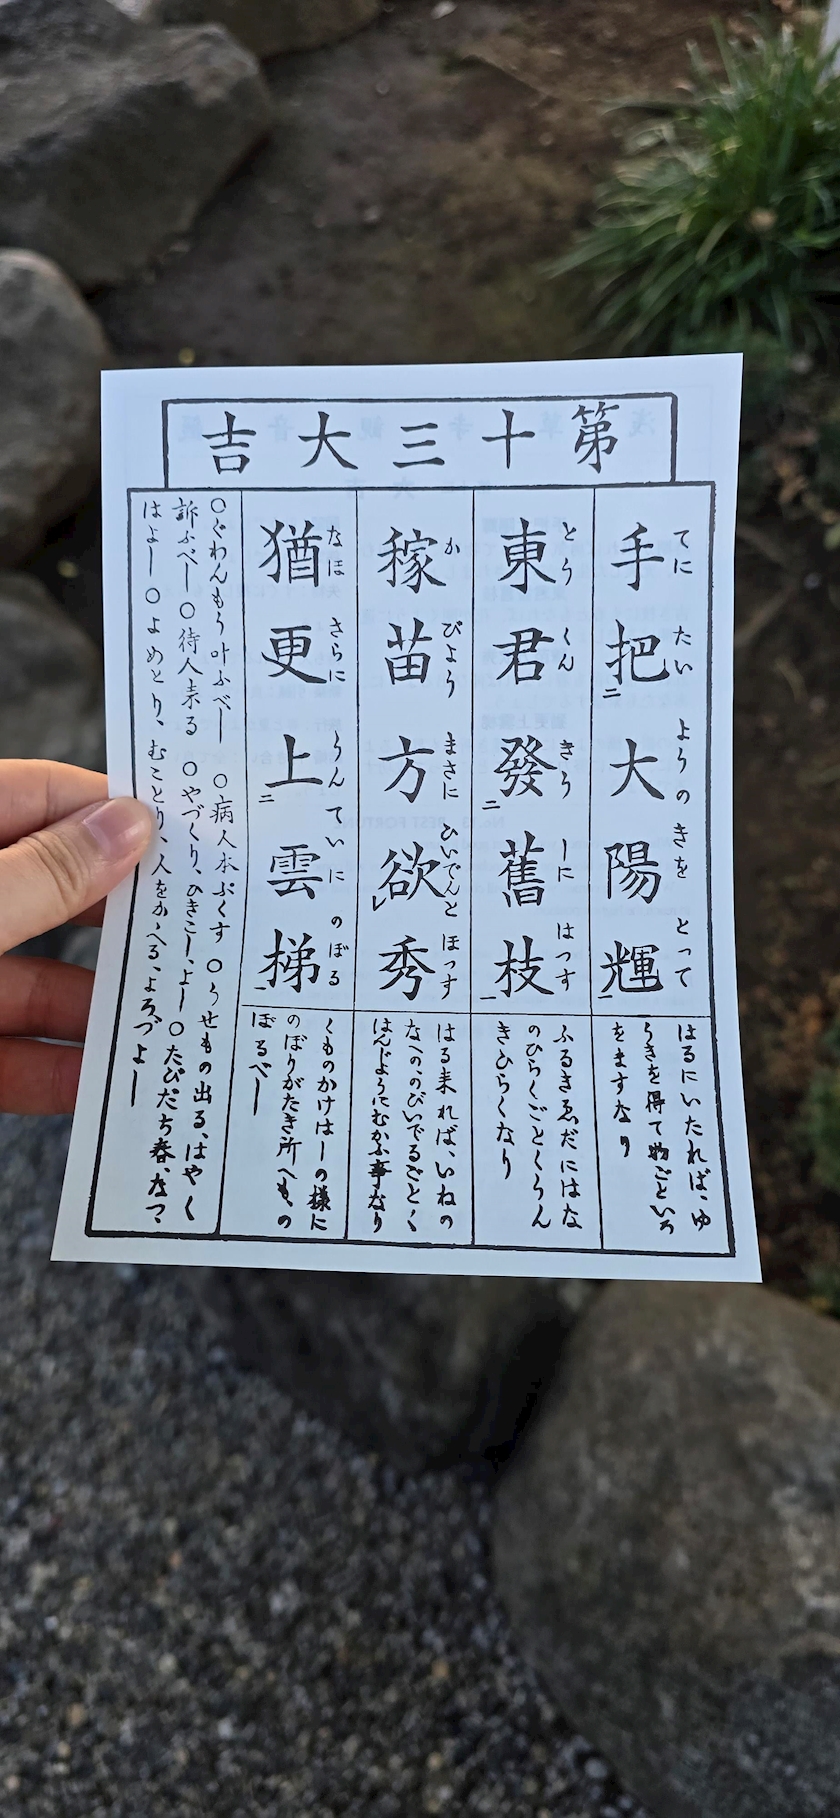 第十三大吉
手把大陽輝
てに たい ようのきを とって
二 一
はるにいたれば、ゆ
うきを得て物ごといろ
をますなり
東君發舊枝
とうくんきうしにはつす
二 一
ふるきゑだにはな
のひらくごとくうん
きひらくなり
稼苗方欲秀
かびようまさにひいでんとほつす
レ
はる来れば、いねの
なへの、のびいでるごとく
はんじようにむかふ事なり
猶更上雲梯
なほさらにうんていにのぼる
二 一
くものかけはしの様に
のぼりがたき所へも、の
ぼるべし
○ぐわんもう叶ふべし ○病人本ぷくす ○うせもの出る、はやく
訴ふべし ○待人来る ○やづくり、ひきこし、よし ○たびだち春、なつ
はよし ○よめとり、むことり、人をかゝへる、よろづよし